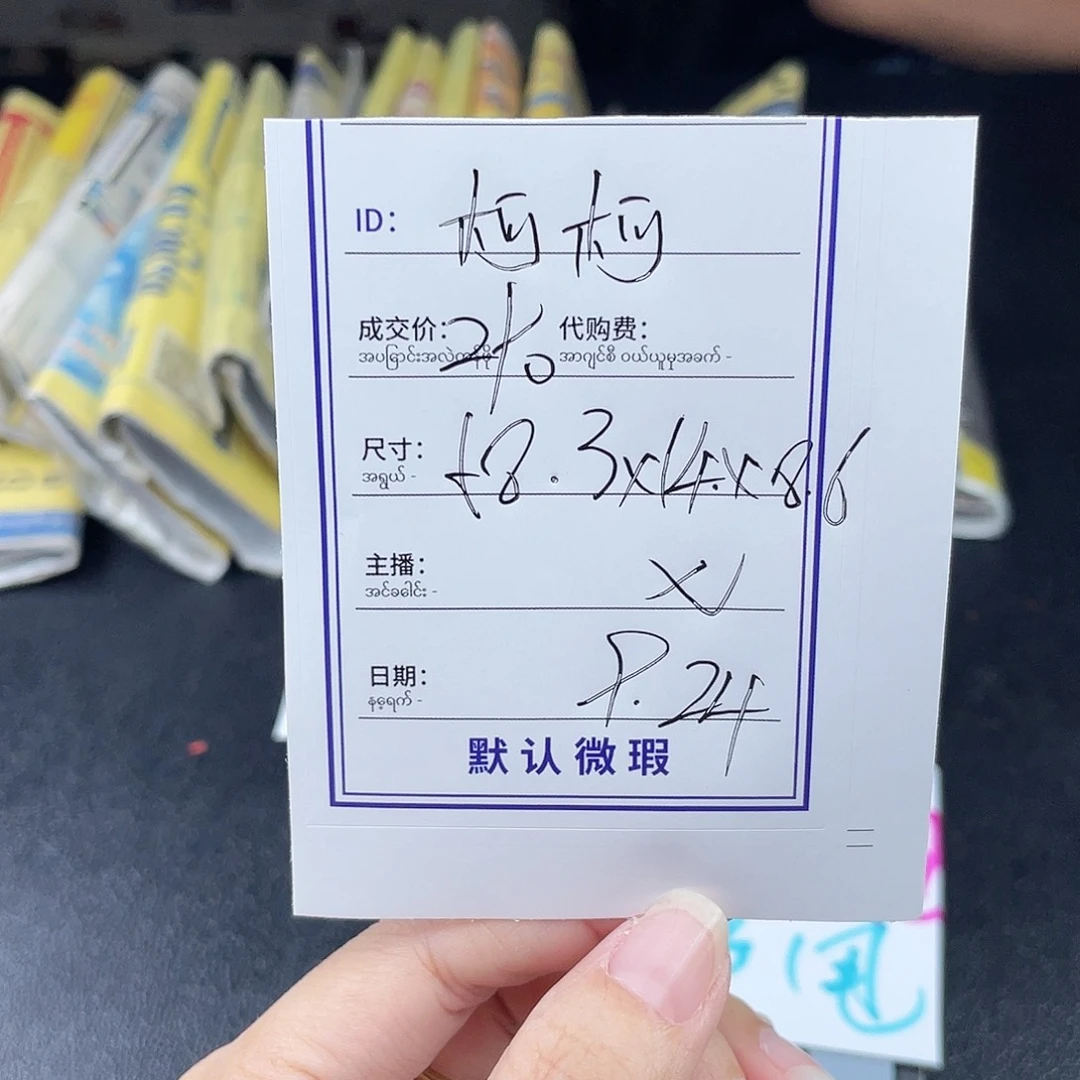 ID: 柯柯
成交价: 代购费:
အပြောင်းအလဲတန်ဖိုး အာဂျင်စီ ဝယ်ယူမှုအခက် -
尺寸: 58.3x14.x8.6
အရွယ် -
主播:
အင်ခေါင်း -
日期: 9.24
နေ့ရက် -
默认微瑕